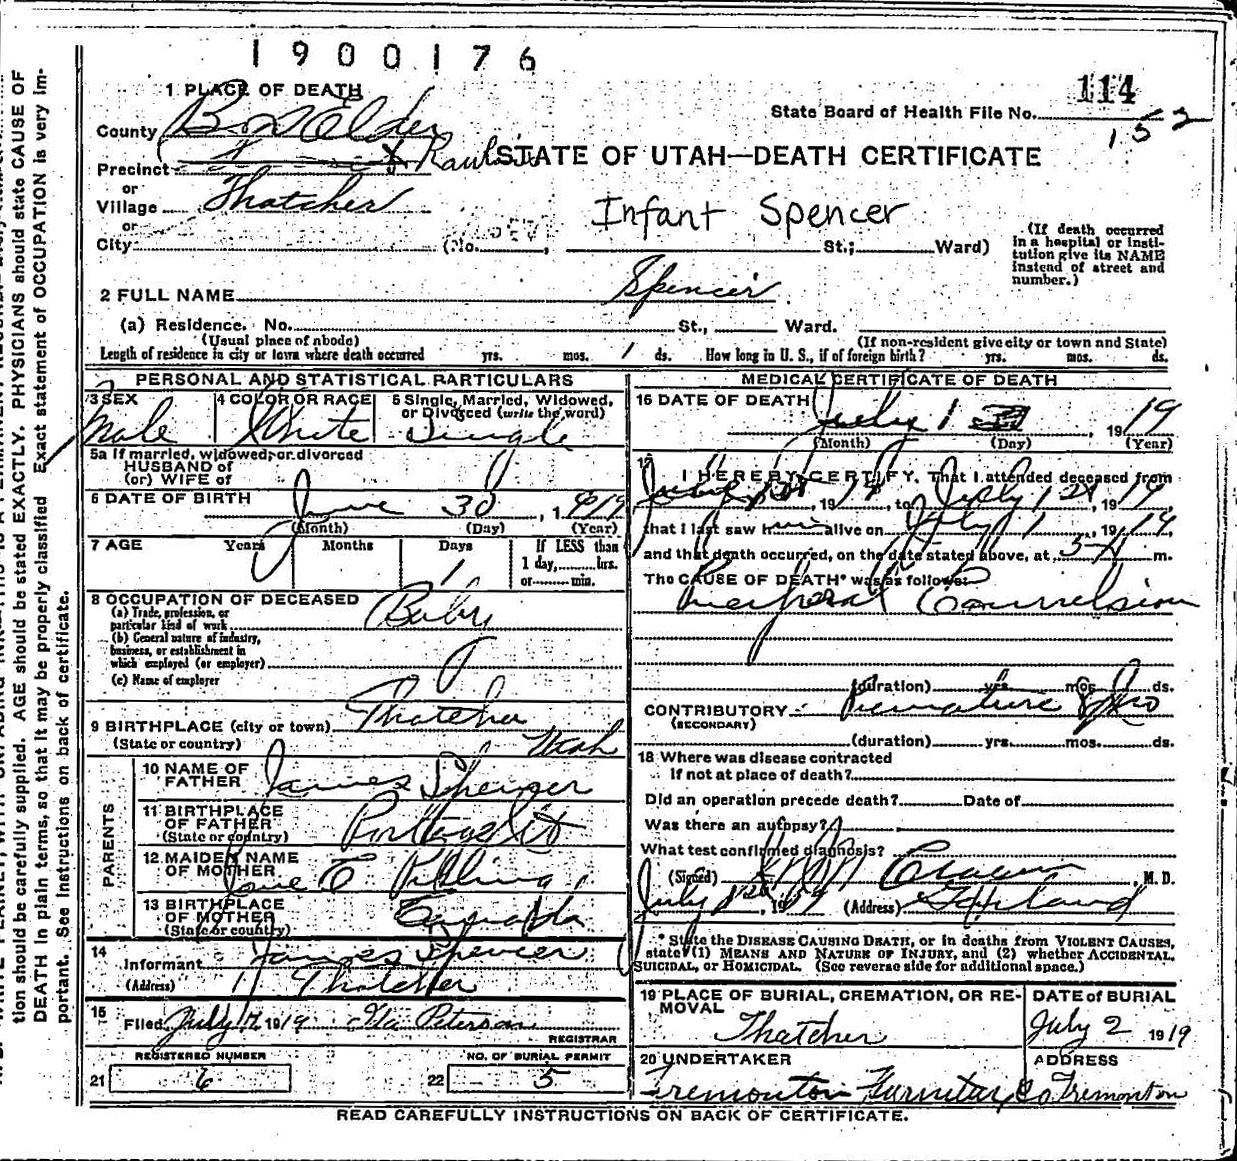 1900176
114
1 PLACE OF DEATH
State Board of Health File No.
152
County Box Elder
Precinct
STATE OF UTAH—DEATH CERTIFICATE
or
Village Thatcher
Infant Spencer
or
City (No. , St.; Ward)
(If death occurred in a hospital or insti- tution give its NAME instead of street and number.)
2 FULL NAME Spencer
(a) Residence. No. St., Ward.
(Usual place of abode) (If non-resident give city or town and State)
Length of residence in city or town where death occurred yrs. mos. 1 ds. How long in U. S., if of foreign birth? yrs. mos. ds.
PERSONAL AND STATISTICAL PARTICULARS
3 SEX 4 COLOR OR RACE 5 Single, Married, Widowed, or Divorced (write the word)
Male White Single
5a If married, widowed, or divorced
HUSBAND of
(or) WIFE of
6 DATE OF BIRTH June 30, 1919
(Month) (Day) (Year)
7 AGE Years Months Days If LESS than
1 1 day, hrs.
or min.
8 OCCUPATION OF DECEASED Baby
(a) Trade, profession, or
particular kind of work
(b) General nature of industry,
business, or establishment in
which employed (or employer)
(c) Name of employer
9 BIRTHPLACE (city or town) Thatcher
(State or country) Utah
PARENTS
10 NAME OF FATHER James Spencer
11 BIRTHPLACE OF FATHER
(State or country)
12 MAIDEN NAME OF MOTHER Jane E Pilling
13 BIRTHPLACE OF MOTHER Canada
(State or country)
14 Informant James Spencer
(Address) Thatcher
15 Filed July 7, 1919 Ila Peterson
REGISTRAR
REGISTERED NUMBER NO. OF BURIAL PERMIT
21 6 22 5
MEDICAL CERTIFICATE OF DEATH
16 DATE OF DEATH July 1, 1919
(Month) (Day) (Year)
17 I HEREBY CERTIFY, That I attended deceased from
July 1st, 1919, to July 1st, 1919
that I last saw him alive on July 1, 1919,
and that death occurred, on the date stated above, at 5 m.
The CAUSE OF DEATH* was as follows:
Convulsion
(duration) yrs. mos. ds.
CONTRIBUTORY Premature
(SECONDARY)
(duration) yrs. mos. ds.
18 Where was disease contracted
if not at place of death?
Did an operation precede death? Date of
Was there an autopsy?
What test confirmed diagnosis?
(Signed) , M. D.
July 1st, 19 (Address) Garland
* State the DISEASE CAUSING DEATH, or in deaths from VIOLENT CAUSES,
state (1) MEANS AND NATURE OF INJURY, and (2) whether ACCIDENTAL,
SUICIDAL, or HOMICIDAL. (See reverse side for additional space.)
19 PLACE OF BURIAL, CREMATION, OR RE- MOVAL DATE of BURIAL
Thatcher July 2 1919
20 UNDERTAKER ADDRESS
Tremonton Furniture Co Tremonton
READ CAREFULLY INSTRUCTIONS ON BACK OF CERTIFICATE.
tion should be carefully supplied. AGE should be stated EXACTLY. PHYSICIANS should state CAUSE OF
DEATH in plain terms, so that it may be properly classified. Exact statement of OCCUPATION is very im-
portant. See instructions on back of certificate.